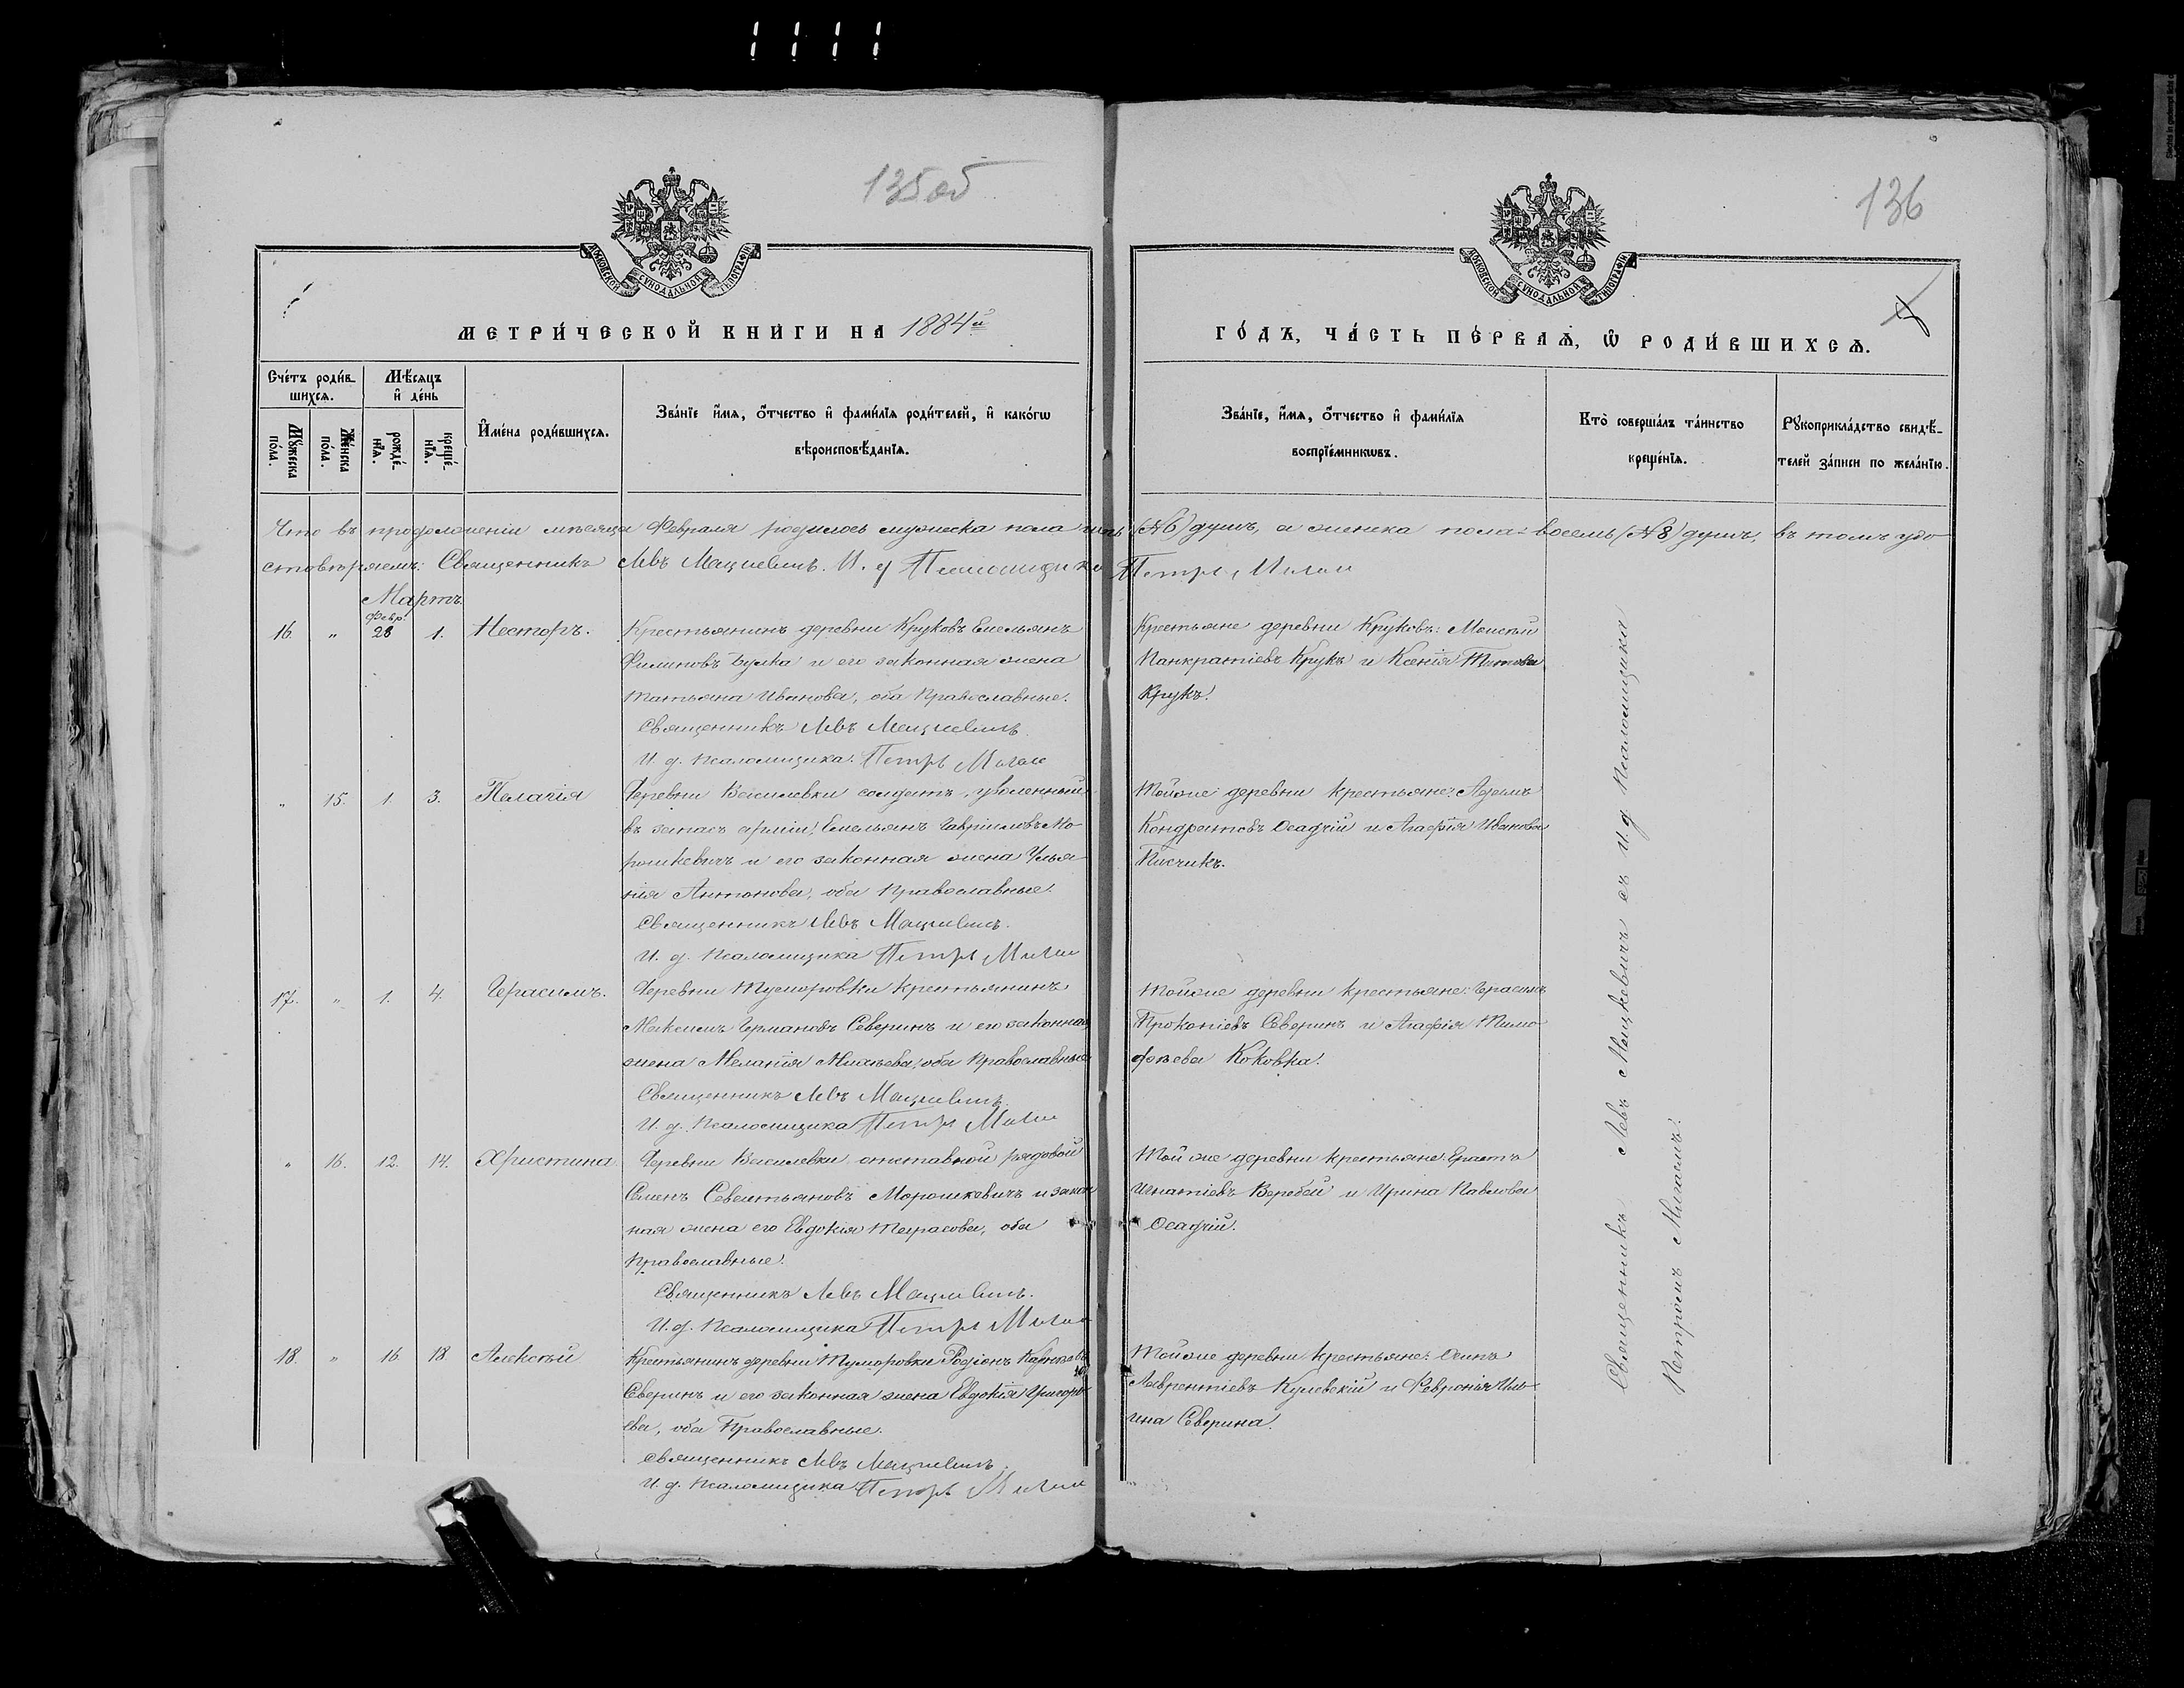 135об
136
МОСКОВСКОЙ СѴНОДАЛЬНОЙ ТИПОГРАФІИ
МОСКОВСКОЙ СѴНОДАЛЬНОЙ ТИПОГРАФІИ
МЕТРИ́ЧЕСКОЙ КНИ́ГИ НА 1884й
ГО́ДЪ, ЧА́СТЬ ПЕ́РВАѦ, Ѡ҆ РОДИ́ВШИХСѦ.
Сче́тъ роди́в-
шихсѧ.
Мꙋ́жеска по́ла.
Же́нска по́ла.
Мѣ́сяцъ и҆ де́нь
рожде́-нїѧ.
креще́-нїѧ.
И҆мена́ роди́вшихсѧ.
Зва́нїе и҆́мѧ, ѻ҆́тчество и҆ фами́лїѧ роди́телей, и҆ како́гѡ
вѣроисповѣ́данїѧ.
Зва́нїе, и҆́мѧ, ѻ҆́тчество и҆ фами́лїѧ
воспрїе́мникѡвъ.
Кто̀ соверша́лъ та́инство
креще́нїѧ.
Рꙋкоприкла́дство свидѣ́-
телей за́писи по жела́нїю.
Что въ продолженіи мѣсяца Февраля родилось мужеска пола шесть (№ 6) душъ, а женска пола восемь (№ 8) душъ, въ томъ удо-
стовѣряемъ: Священникъ Левъ Мацкевичъ. И. д Псаломщика Петръ
Мартъ
16. " Февр. 28 1. Несторъ. Крестьянинъ деревни Круковъ Емельянъ
Филиповъ Булка и его законная жена
Татьяна Иванова, оба Православные.
Священникъ Левъ Мацкевичъ.
И. д. Псаломщика: Петръ
Крестьяне деревни Круковъ: Моисей
Панкратіевъ Крукъ и Ксенія Титова
Крукъ.
" 15. 1. 3. Пелагія Деревни Василевки солдатъ, уволенный
въ запасъ арміи, Емельянъ Гавріиловъ Мо-
рошкевичъ и его законная жена Улья-
нія Антонова, оба Православные.
Священникъ Левъ Мацкевичъ.
И. д. Псаломщика Петръ
Той же деревни крестьяне:
Кондратовъ Осадчій и Агафія Иванова
Писчикъ.
17. " 1. 4. Герасимъ. Деревни Тумаровки Крестьянинъ
Максимъ Германовъ Северинъ и его законная
жена Меланія Михеева, оба Православные
Священникъ Левъ Мацкевичъ.
И. д. Псаломщика Петръ
Той же деревни крестьяне: Герасимъ
Прокопіевъ Северинъ и Агафія Тимо-
феева Коковка.
" 16. 12. 14. Христина. Деревни Василевки отставной рядовой
Семенъ Севастьяновъ Морошкевичъ и закон-
ная жена его Евдокія Тарасова, оба
Православные.
Священникъ Левъ Мацкевичъ.
И. д. Псаломщика Петръ
Той же деревни крестьяне: Ерастъ
Игнатіевъ Воробей и Ирина Павлова
Осадчій.
18. " 16 18 Алексѣй Крестьянинъ деревни Тумаровки Родіонъ
Северинъ и его законная жена Евдокія Григорь-
ева, оба Православные.
Священникъ Левъ Мацкевичъ
И. д. Псаломщика Петръ
Той же деревни крестьяне: Осипъ
Лаврентіевъ Кулевскій и Февронія Иль-
ина Северина.
Священникъ Левъ Мацкевичъ съ и. д. Псаломщика
Петромъ